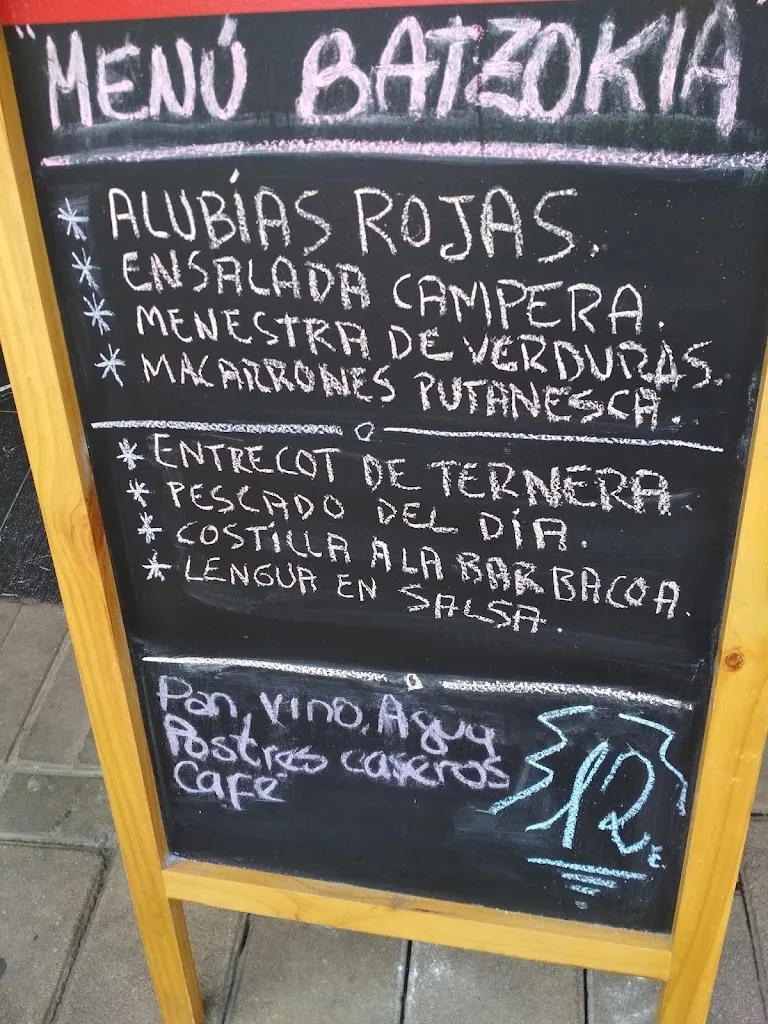 "MENÚ BATZOKIA
* ALUBÍAS ROJAS.
* ENSALADA CAMPERA.
* MENESTRA DE VERDURAS.
* MACARRONES PUTANESCA.
* ENTRECOT DE TERNERA.
* PESCADO DEL DÍA.
* COSTILLA A LA BARBACOA.
* LENGUA EN SALSA.
Pan, Vino, Agua
Postres caseros
Café
12€